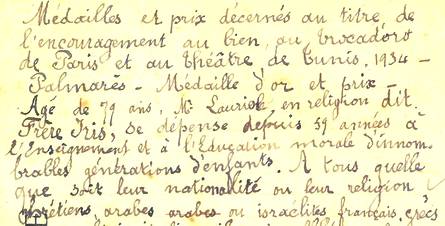 Médailles et prix décernés au titre de
l'encouragement au bien, au Trocadéro
de Paris et au théâtre de Tunis, 1934 -
Palmarès - Médaille d'or et prix -
Agé de 79 ans, Mr Lauriol en religion dit
Frère Iris, se dépense depuis 59 années à
l'Enseignement et à l'Education morale d'innom-
brables générations d'enfants. A tous quelle
que soit leur nationalité ou leur religion
chrétiens, arabes arabes ou israélites français, grecs